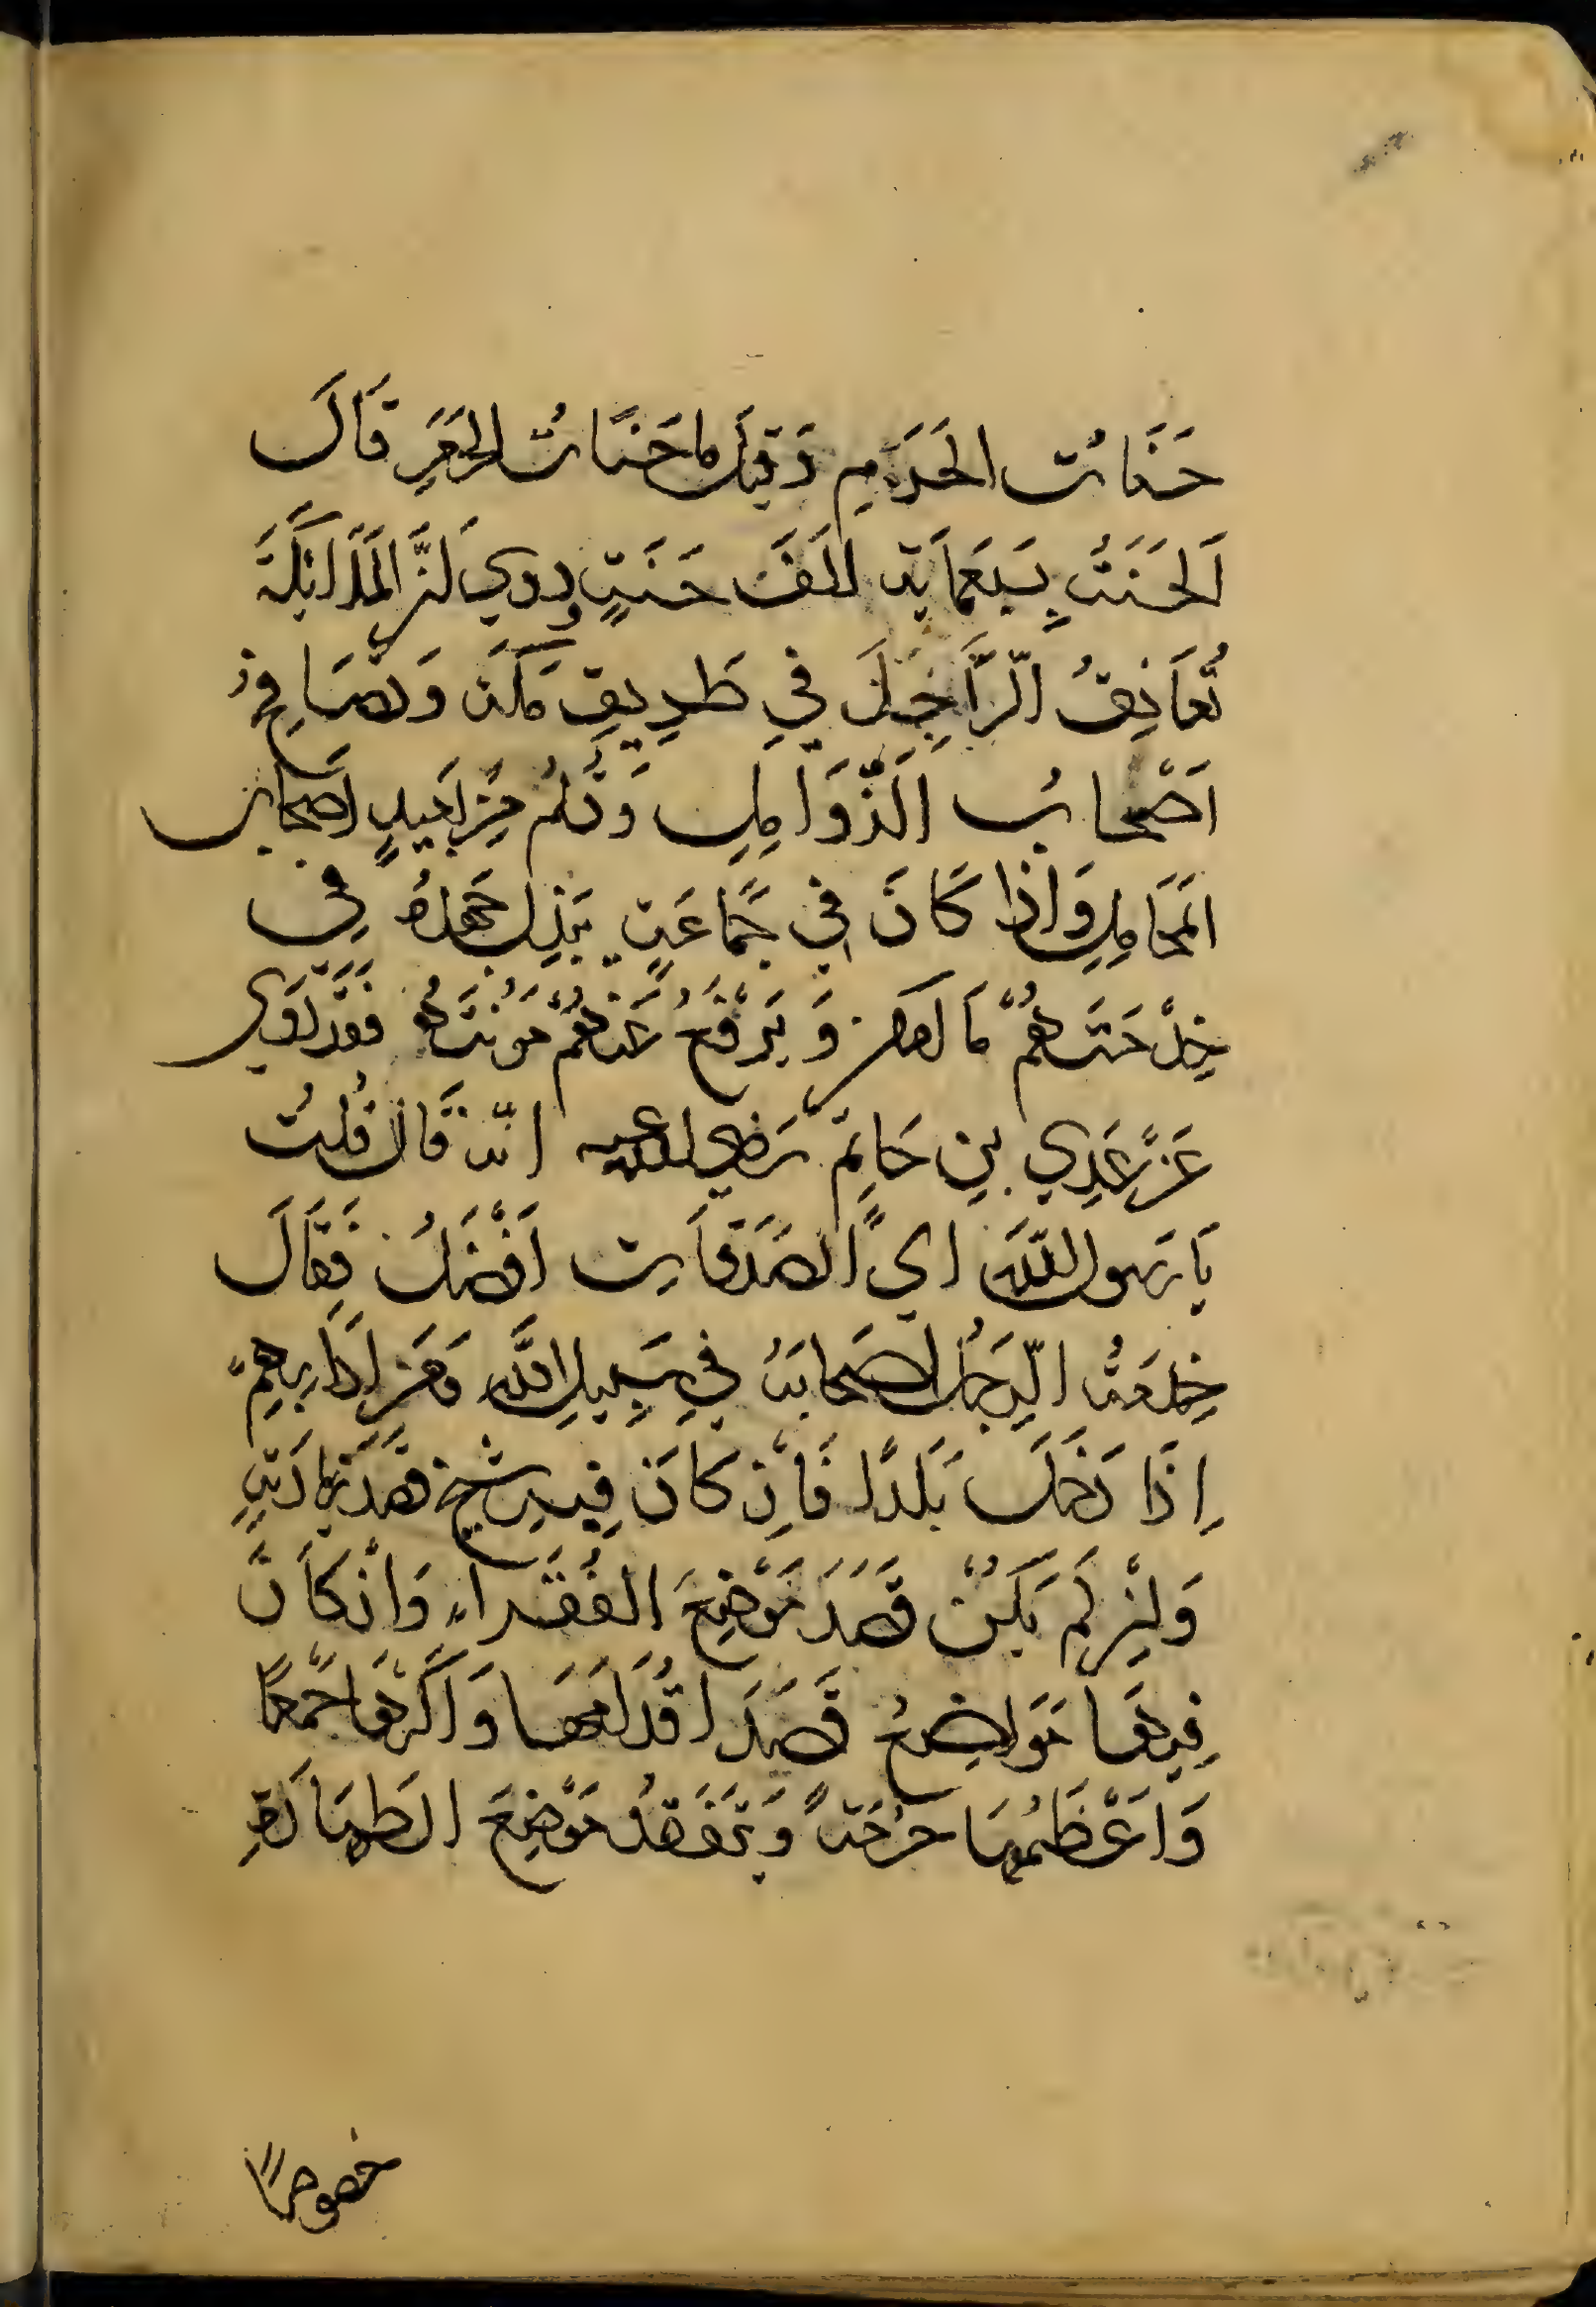 حَسَنَاتِ الحَرَمِ وَقيلَ ما حَسَنَاتُ الحَرَمِ قَالَ
اَلحَسَنَةُ بِسَبعمَايَة اَلفَ حَسَنَةٍ وروي اَنَّ المَلَائِكَةَ
تُعَانِقُ الرَّاجِلَ في طَرِيقِ مَكَّةَ وَتُصَافِحُ
اَصْحابُ الزَّوَامِلِ وَتُسَلّمُ مِن بَعيدٍ اَصحَابِ
المَحَامِلِ وَاِذا كَانَ في جَمَاعَةٍ يَبذِل جَهدَهُ فِي
خِدْمَتِهُمْ مَا اَمكَن وَيَرْفَعُ عَنهُمْ مَؤُنَتَهُ فَقَد رُوِيَ
عَن عَدِي بنِ حَاتِم رَضي الله عنه انّه قَالَ قُلتُ
يَا رَسولَ اللَّه اي الصَدَقَاتِ اَفْضَلُ فَقَالَ
خِدمَةُ الرّجُل اَصحَابَهُ في سَبِيلِ اللَّه وَمن ادَابِهِمْ
اِذَا دَخَلَ بَلَدًا فَاِن كَانَ فِيهِ شَيخ قَصَدَ زيَارَتِهِ
وَاِن لَم يَكُنْ قَصَدَ مَوْضِعَ الفُقَرَاءِ وَاِنْ كَانَ
فِيهَا مَوَاضِعُ قَصَدَ اَقْدَمَهَا وَاَكْثَرهَا جَمْعًا
وَاَعْظَمُهَا حُرْمَةً وَيَتَفَقَدُ مَوْضِعَ الطَهَارَةِ
خصوصًا